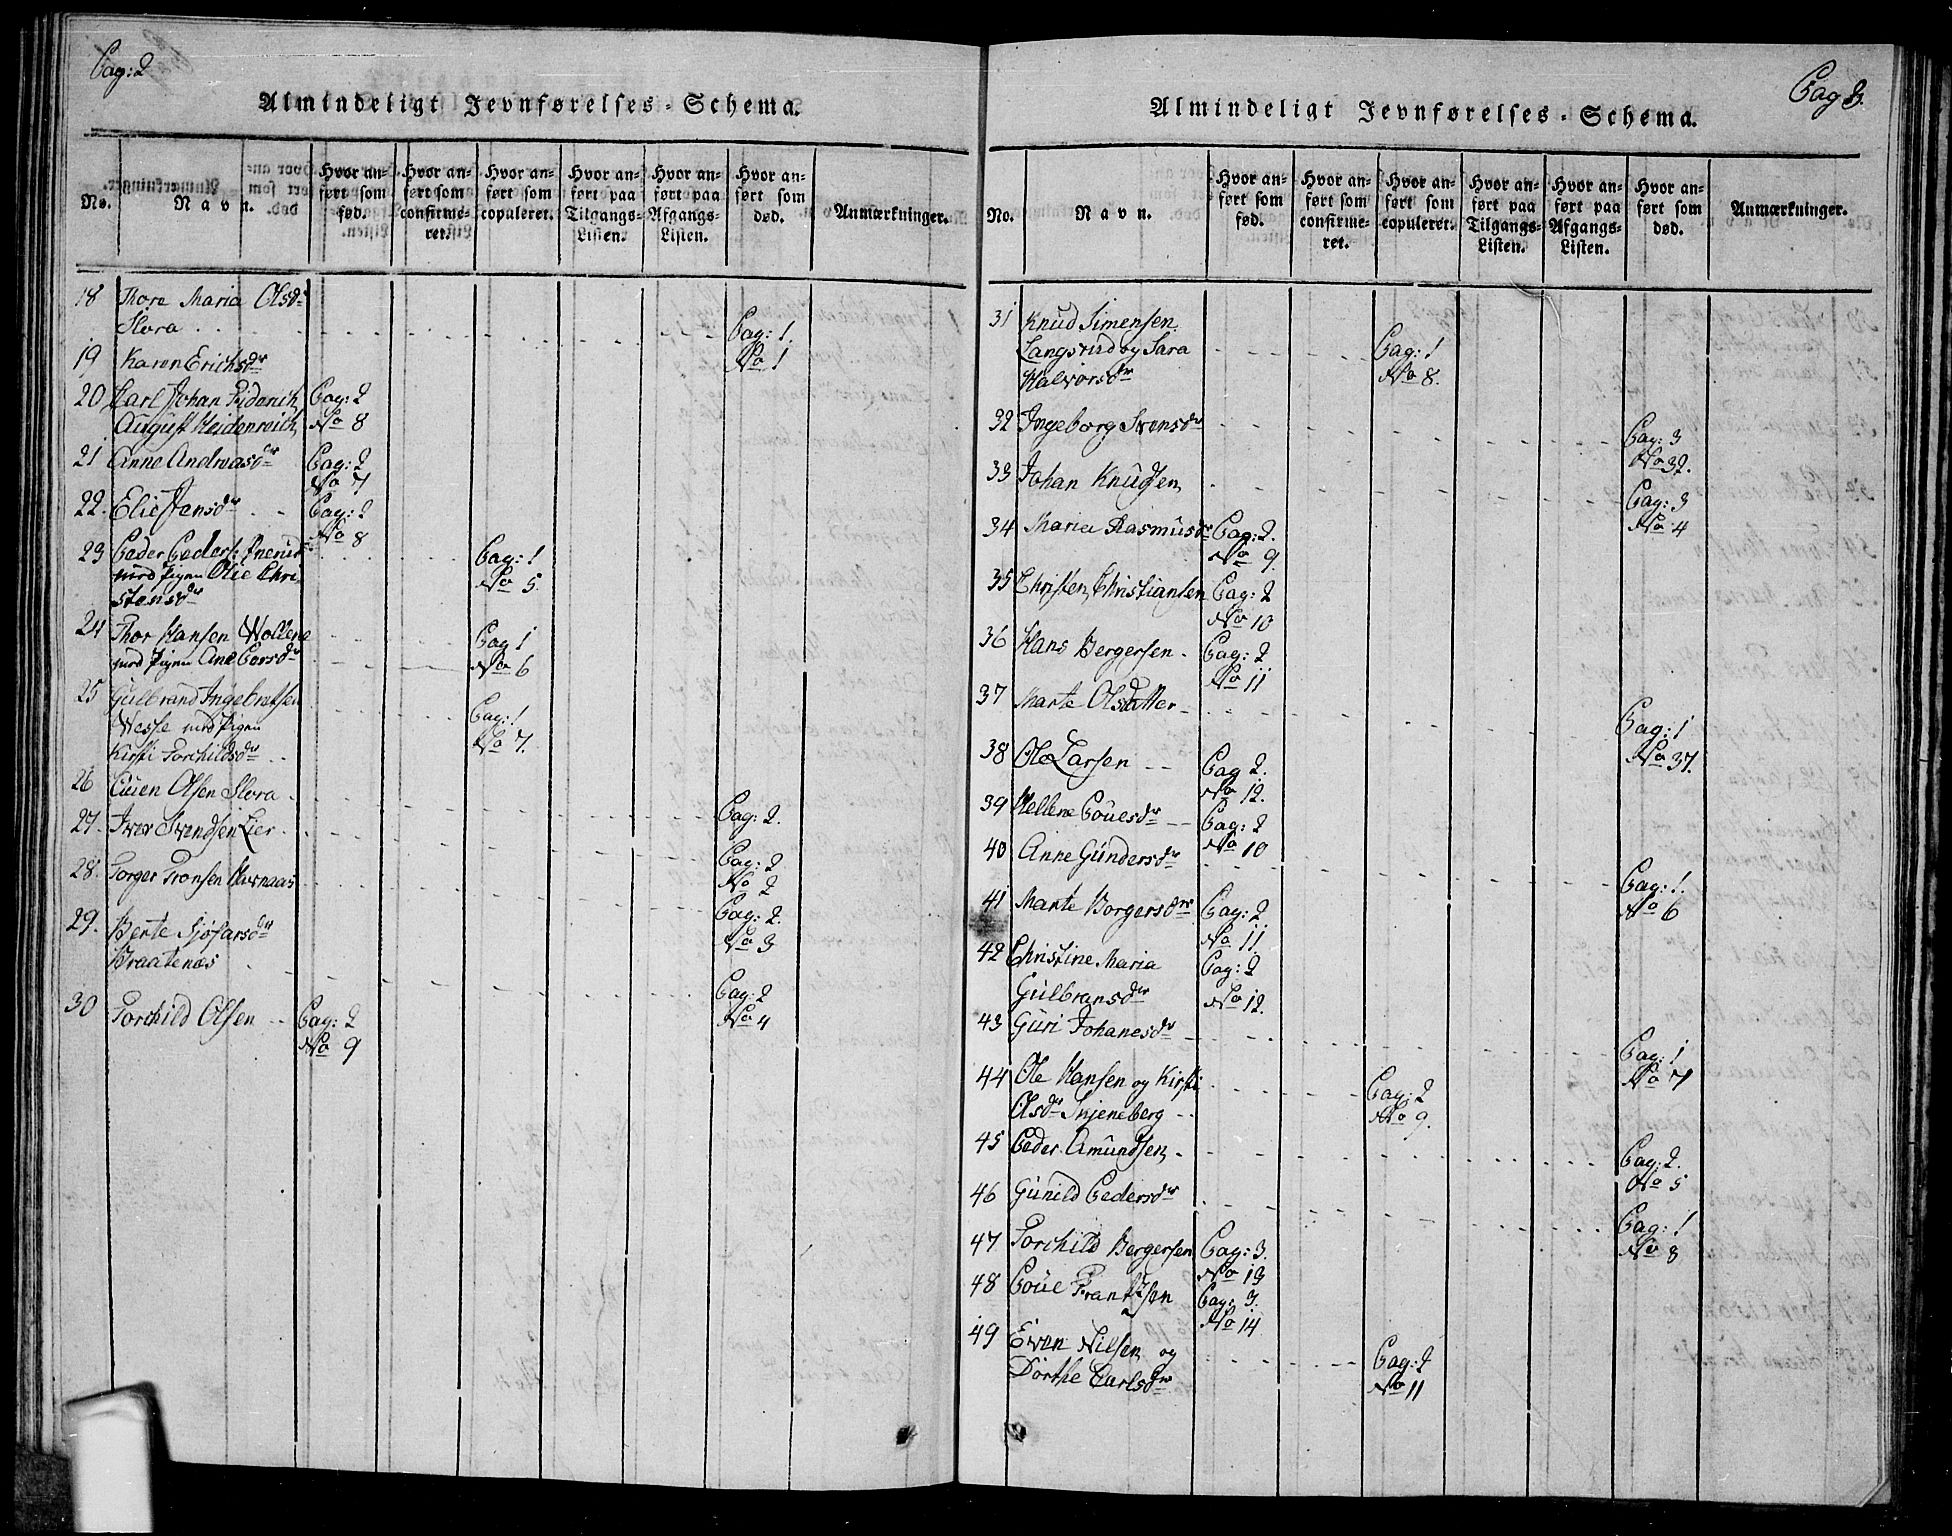 Pag: 2
Almindeligt Jevnførelses-Schema.
No.
Navn.
Hvor an-
ført som
fød.
Hvor an-
ført som
confirme-
ret.
Hvor an-
ført som
copuleret.
Hvor an-
ført paa
Tilgangs-
Listen.
Hvor an-
ført paa
Afgangs-
Listen.
Hvor an-
ført som
død.
Anmærkninger.
18 Thore Maria Olsdr
Slora Pag: 1.
19 Karen Erichsdr No 1
20 Carl Johan Fridenich Pag: 2
August Heidenreich No 8
21 Anne Andreasdr Pag: 2
No 7
22. Elie Jansdr Pag: 2
No 8
23 Peder Peders: Pag: 1
med Pigen Olie Chri- No 5.
stensdr
24 Thor Hansen Wollene Pag 1
med Pigen Ane Larsdr No 6
25 Gulbrand Ingebretsen
Wesse med Pigen Pag: 1
Kirsti Torchildsdr No 7.
26 Euen Olsen Slora Pag: 2.
27. Iver Svendsen Lier Pag: 2
No 2
28. Torger Tronsen Kurnaas Pag: 2.
No 3
29. Berte Sjofarsdr
Braatenæs Pag: 2
No 4
30 Torchild Olsen Pag: 2
No 9
Pag 3.
Almindeligt Jevnførelses-Schema.
No.
Navn.
Hvor an-
ført som
fød.
Hvor an-
ført som
confirme-
ret.
Hvor an-
ført som
copuleret.
Hvor an-
ført paa
Tilgangs-
Listen.
Hvor an-
ført paa
Afgangs-
Listen.
Hvor an-
ført som
død.
Anmærkninger.
31 Knud Simensen
Langsrud og Sara Pag: 1
Halvorsdr No 8.
32 Ingeborg Svensdr Pag: 3
No 32.
33 Johan Knudsen Pag: 3
No 4
34 Maria Rasmusdr Pag: 2.
No 9.
35 Christen Christiansen Pag: 2
No 10
36 Hans Bergersen Pag: 2
No 11
37 Marte Olsdatter Pag: 1
No 37.
38 Ole Larsen Pag 2.
No 12.
39 Hellene Pouelsdr Pag: 2
No 10
40 Anne Gundersdr Pag: 1.
No 6
41 Marte Borgersdr Pag: 2
No 11.
42 Christine Maria Pag: 2
Gulbransdr No 12.
43 Guri Johanesdr Pag: 1
No 7
44 Ole Hansen og Kirsti Pag: 2
Olsdr Snjeneberg No 9.
45 Peder Amundsen Pag: 2.
No 5
46 Gunild Pedersdr Pag: 1
No 8
47 Torchild Bergersen Pag: 3.
No 13
48 Pouel Frantzen Pag: 3.
No 14
49 Even Nilsen og Pag: 2
Dorthe Carlsdr No 11